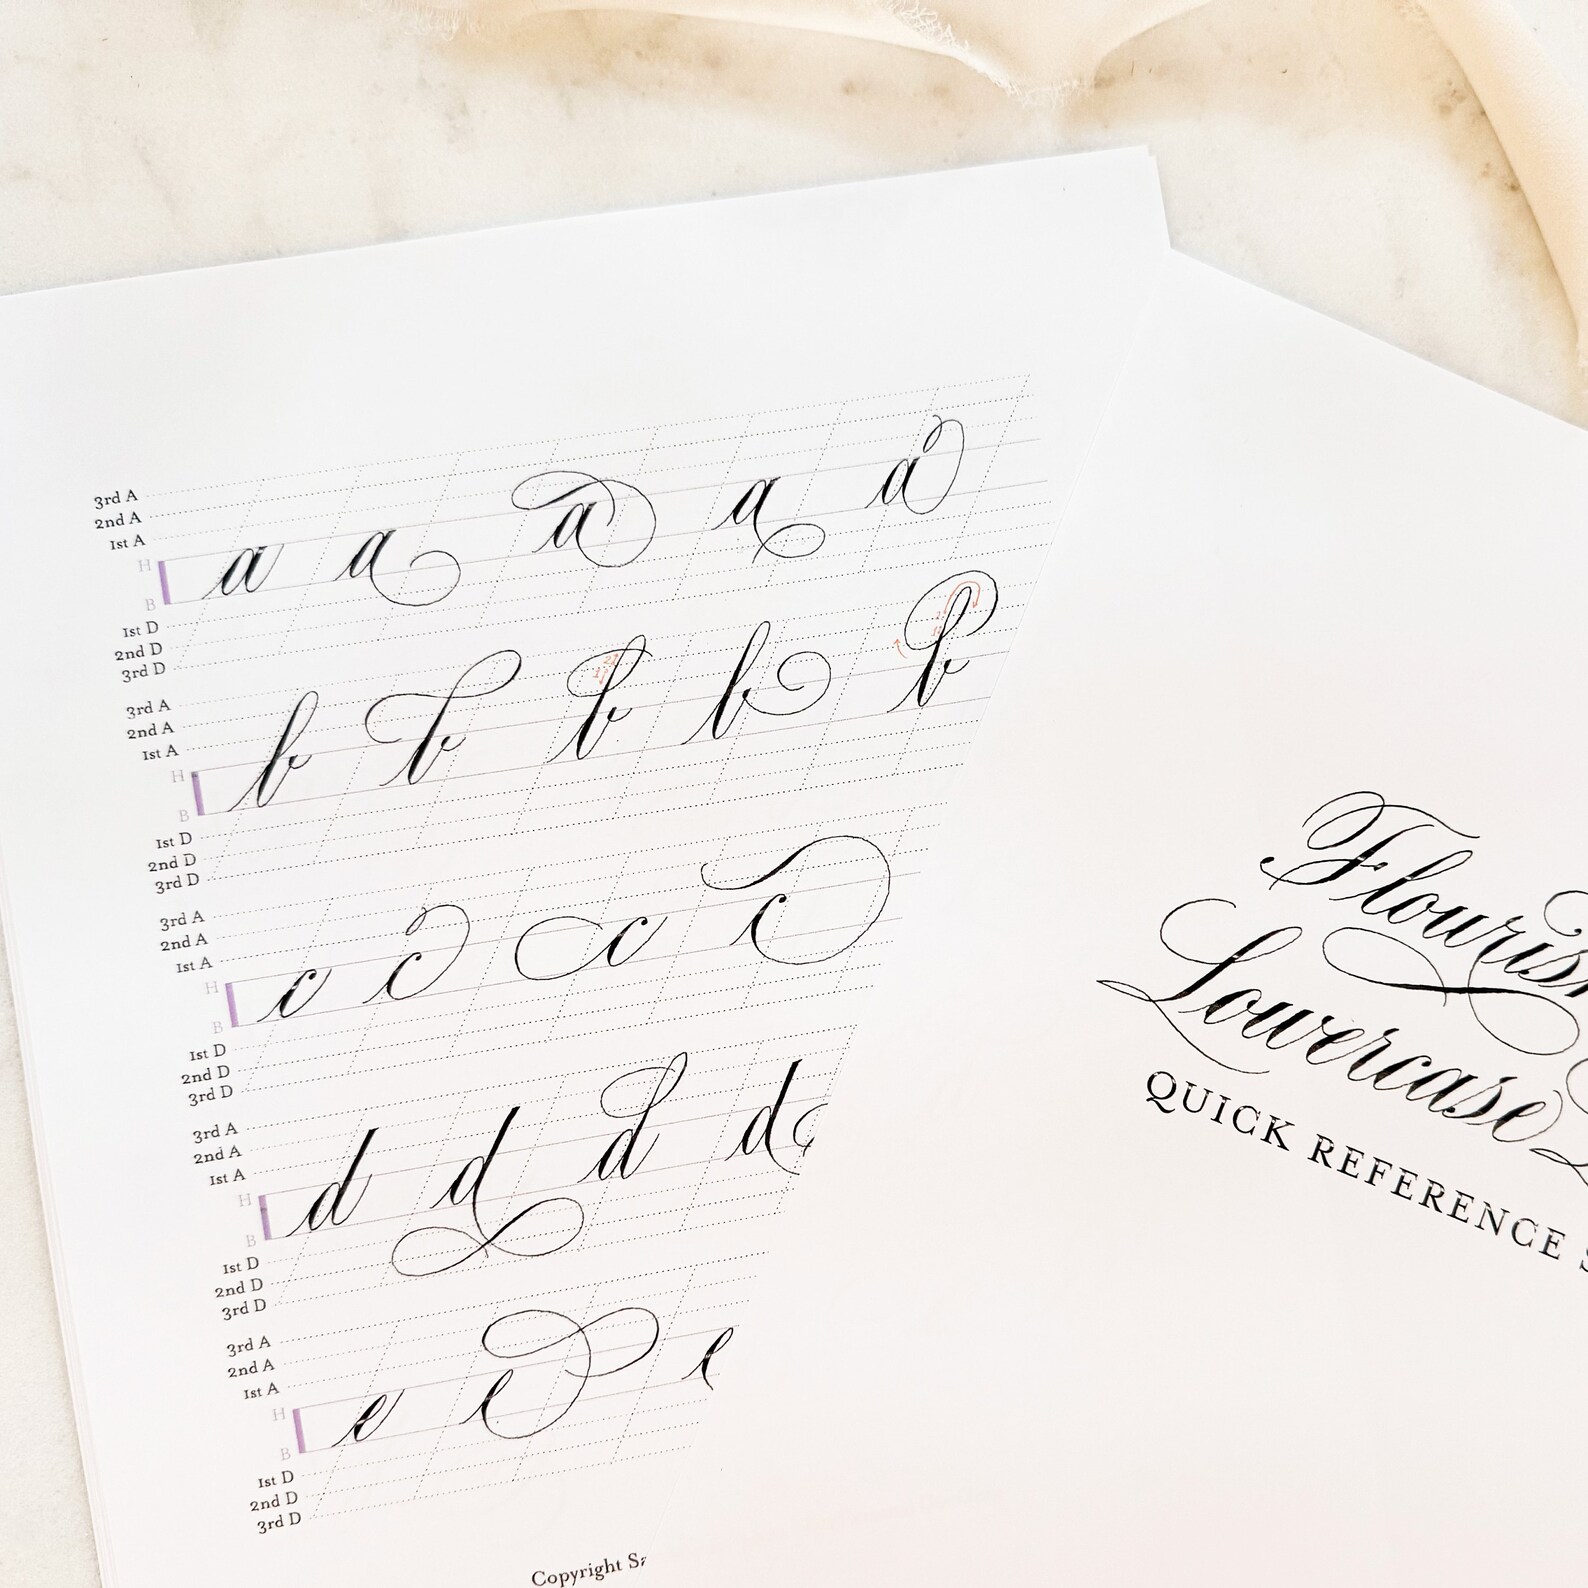 3rd A
2nd A
1st A
H
a a a a a
B
1st D
2nd D
3rd D
3rd A
2nd A
1st A
H
b b b b b
B
1st D
2nd D
3rd D
3rd A
2nd A
1st A
H
c c c c
B
1st D
2nd D
3rd D
3rd A
2nd A
1st A
H
d d d d
B
1st D
2nd D
3rd D
3rd A
2nd A
1st A
H
e e e
B
1st D
2nd D
3rd D
Copyright
Flouris
Lowercase
QUICK REFERENCE